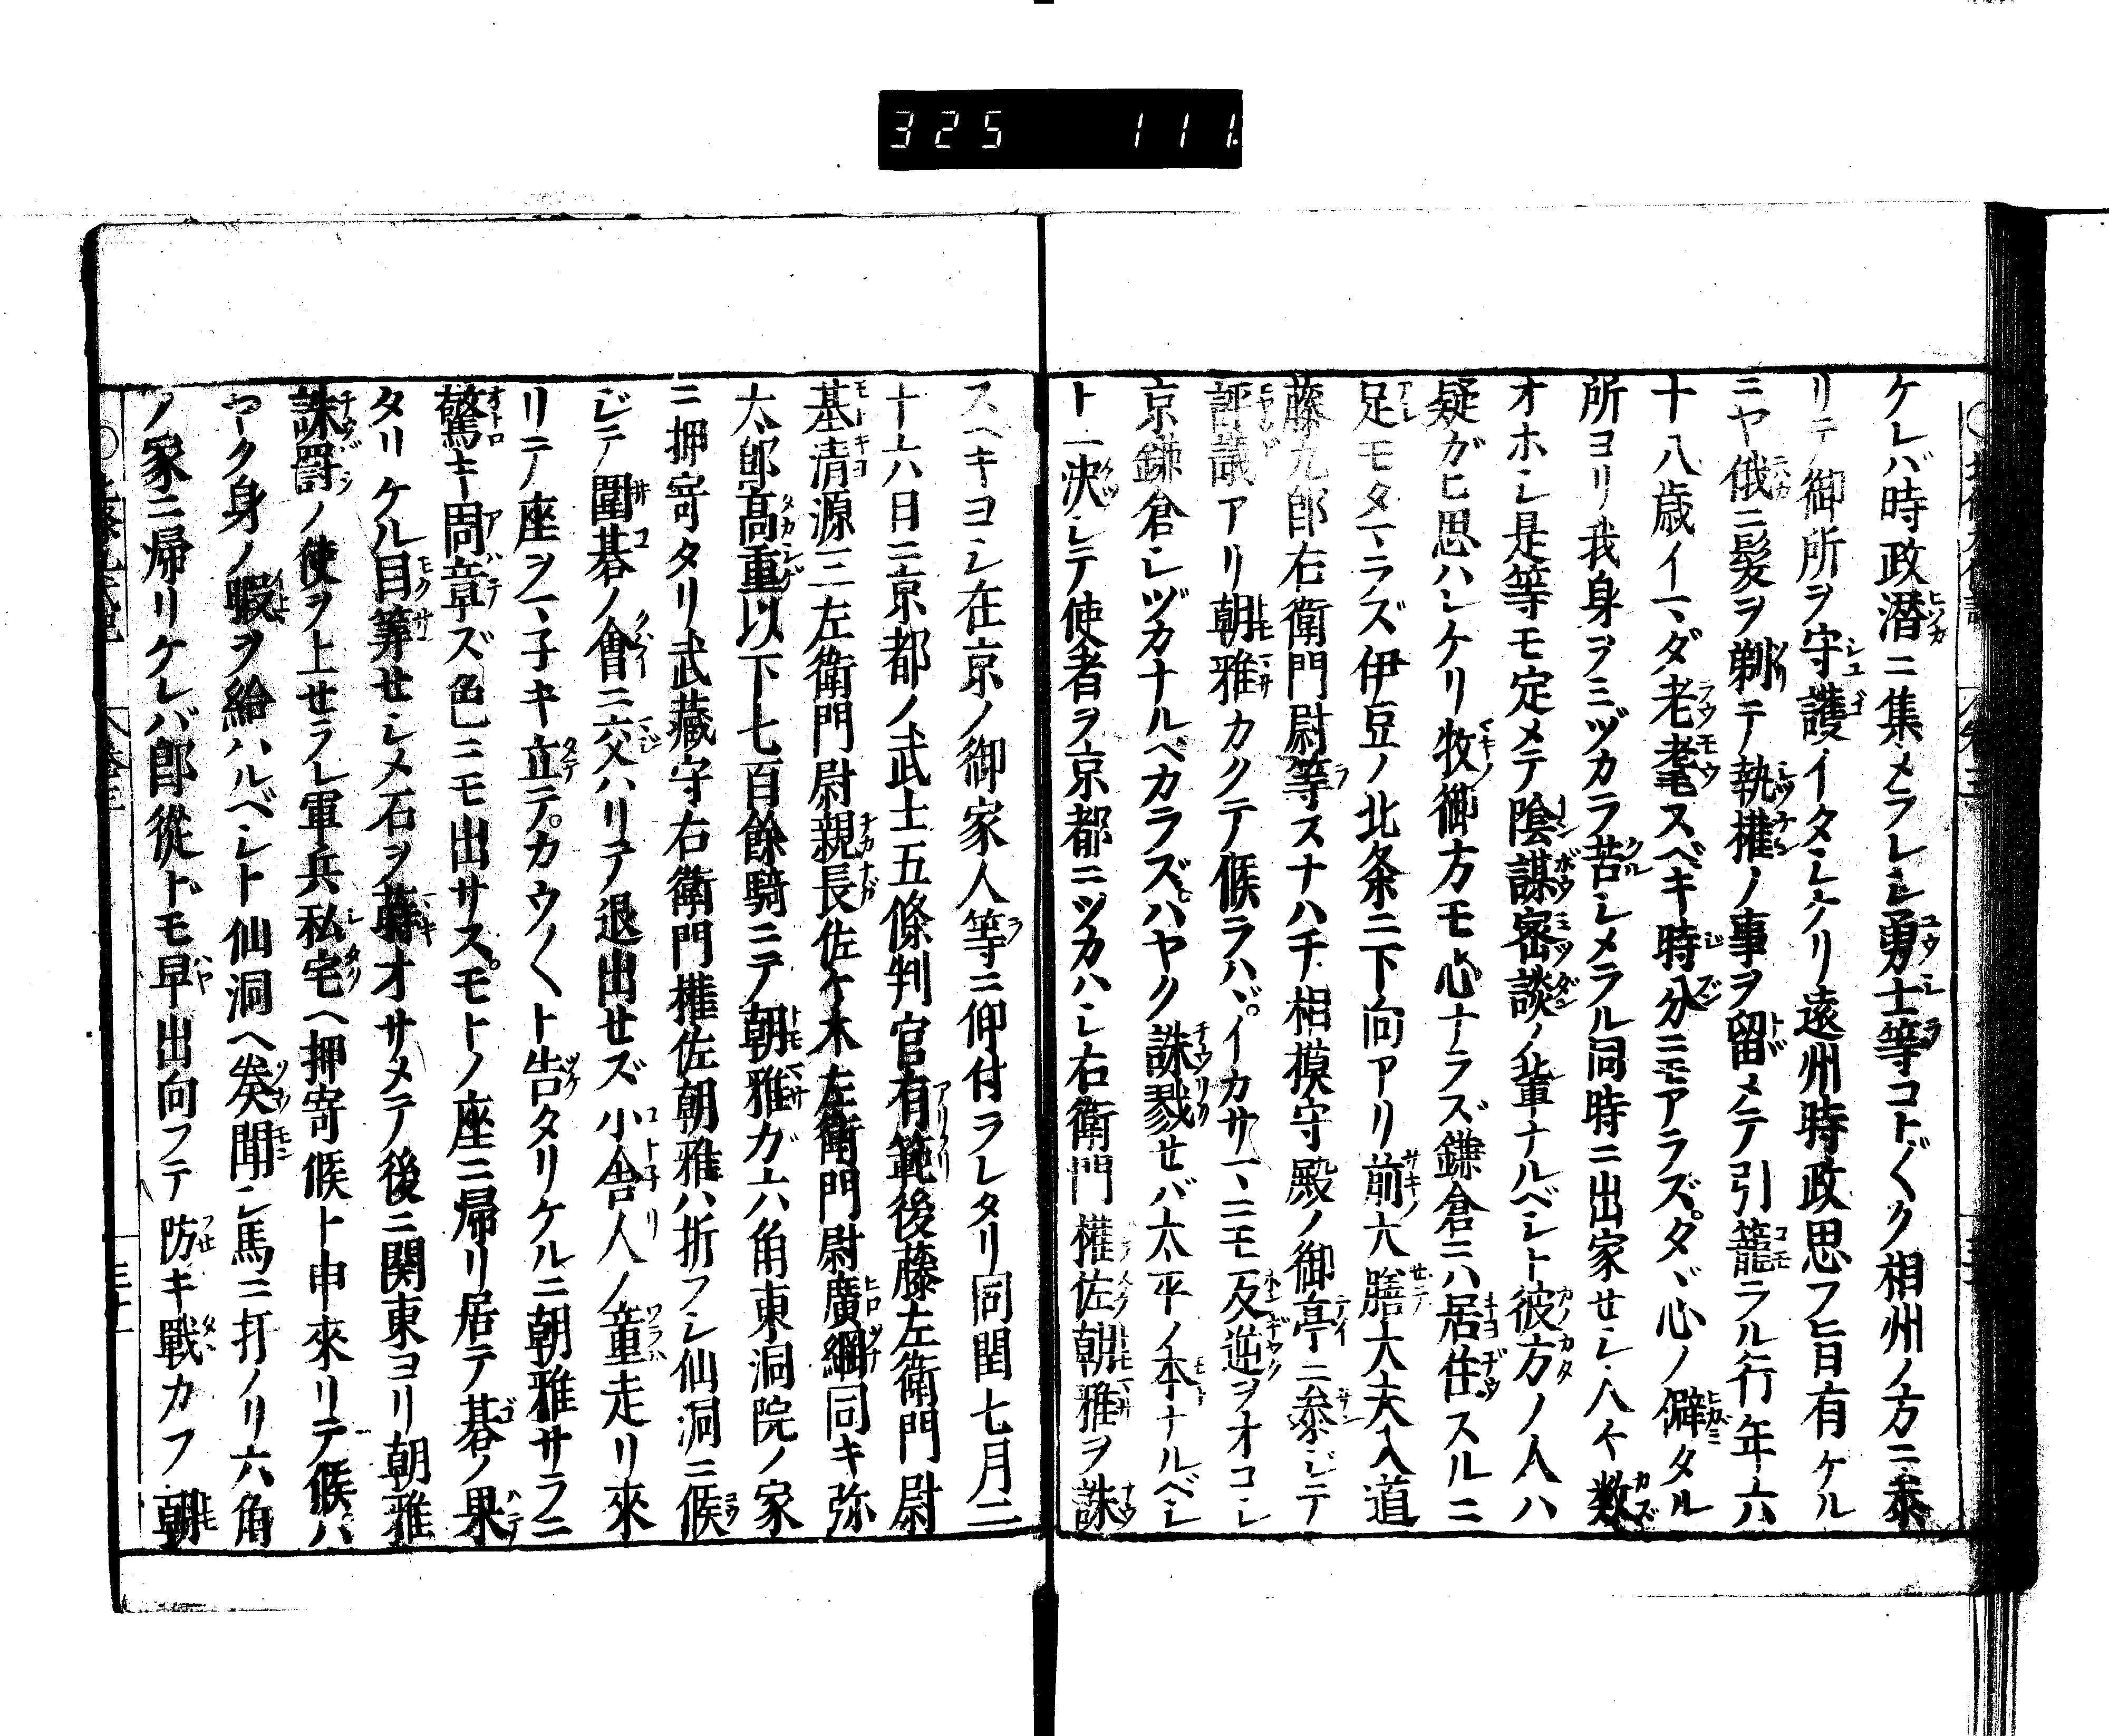 325 111
ケレバ時政潜ニ集メラレシ勇士等コト〲ク相州ノ方ニ参
リテ御所ヲ守護イタシケリ遠州時政思フ旨有ケル
ニヤ俄ニ髪ヲ剃テ執権ノ事ヲ留メテ引籠ラル行年六
十八歳イマダ老耄スベキ時分ニモアラズタヾ心ノ僻タル
所ヨリ我身ヲミヅカラ苦シメラル同時ニ出家せシ人々数
オホシ是等モ定メテ陰謀密談ノ輩ナルベシト彼方ノ人ハ
疑ガヒ思ハシケリ牧御方モ心ナラズ鎌倉ニハ居住スルニ
足モタマラズ伊豆ノ北条ニ下向アリ前大膳大夫入道
藤九郎右衛門尉等スナハチ相摸守殿ノ御亭ニ参ジテ
評議アリ朝雅カクテ候ラハヾイカサマニモ反逆ヲオコシ
京鎌倉シヅカナルベカラズハヤク誅戮せバ太平ノ本ナルベシ
ト一決シテ使者ヲ京都ニツカハシ右衛門権佐朝雅ヲ誅
スヘキヨシ在京ノ御家人等ニ仰付ラレタリ同閏七月二
十六日ニ京都ノ武士五條判官有範後藤左衛門尉
基清源三左衛門尉親長佐々木左衛門尉廣綱同キ弥
太郎高重以下七百餘騎ニテ朝雅ガ六角東洞院ノ家
ニ押寄タリ武藏守右衛門権佐朝雅ハ折フシ仙洞ニ候
ジテ圍碁ノ會ニ交ハリテ退出せズ小舎人ノ童走リ來
リテ座ヲマネキ立テカウ〱ト告タリケルニ朝雅サラニ
驚キ周章ズ色ニモ出サスモトノ座ニ帰リ居テ碁ノ果
タリケル目算せシメ石ヲ蒔オサメテ後ニ関東ヨリ朝雅
誅罸ノ使ヲ上せラレ軍兵私宅ヘ押寄候ト申來リテ候ハ
ヤク身ノ暇ヲ給ハルベシト仙洞ヘ奏聞シ馬ニ打ノリ六角
ノ家ニ帰リケレバ郎從トモ早出向フテ防キ戰カフ朝